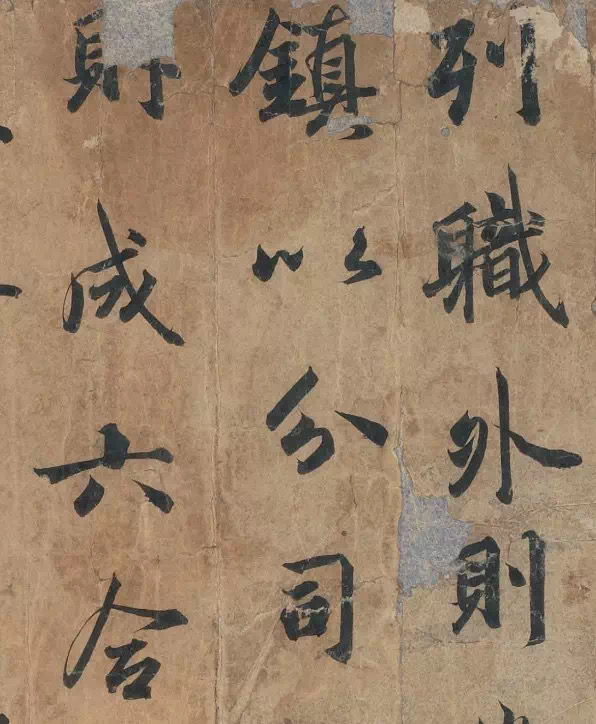 列職外則
鎮以分司
則成六合